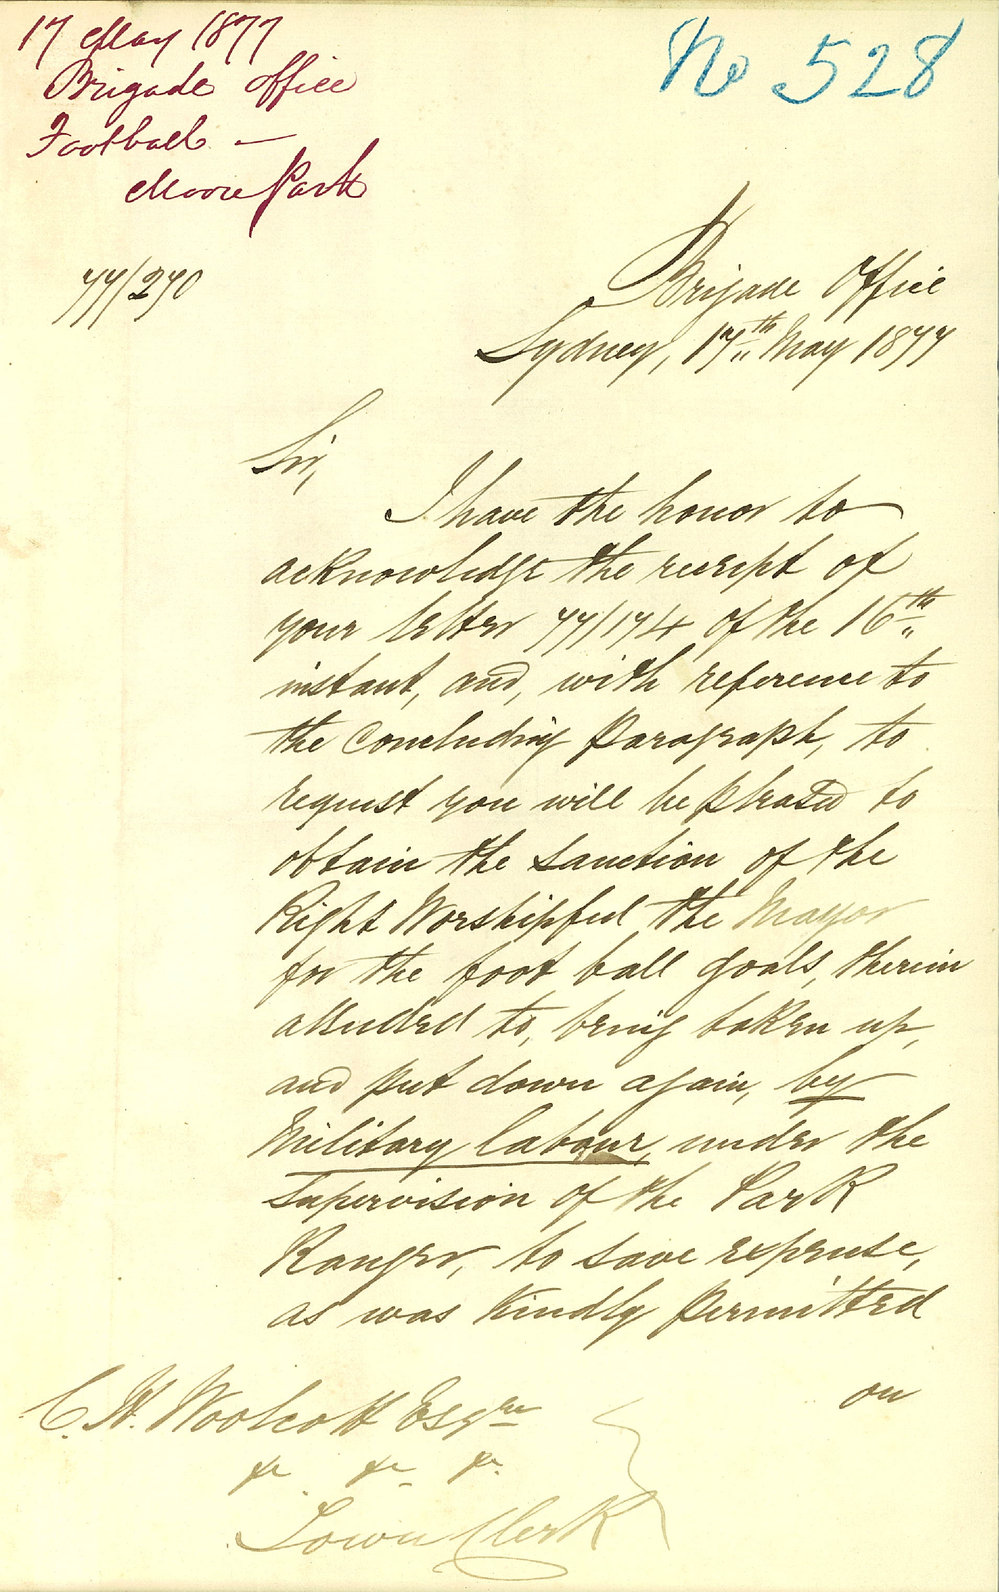 17 May 1877
Brigade Office
Football —
Moore Park
No 528
77/270
Brigade Office
Sydney, 17th May 1877
Sir,
I have the honor to
acknowledge the receipt of
your letter 77/174 of the 16th
instant, and, with reference to
the concluding paragraph, to
request you will be pleased to
obtain the sanction of the
Right Worshipful the Mayor
for the foot ball goals, therein
alluded to, being taken up,
and put down again, by
Military labour, under the
Supervision of the Park
Ranger, to save expense,
as was kindly permitted
on
C. H. Woolcott Esqre
&c &c &c.
Town Clerk